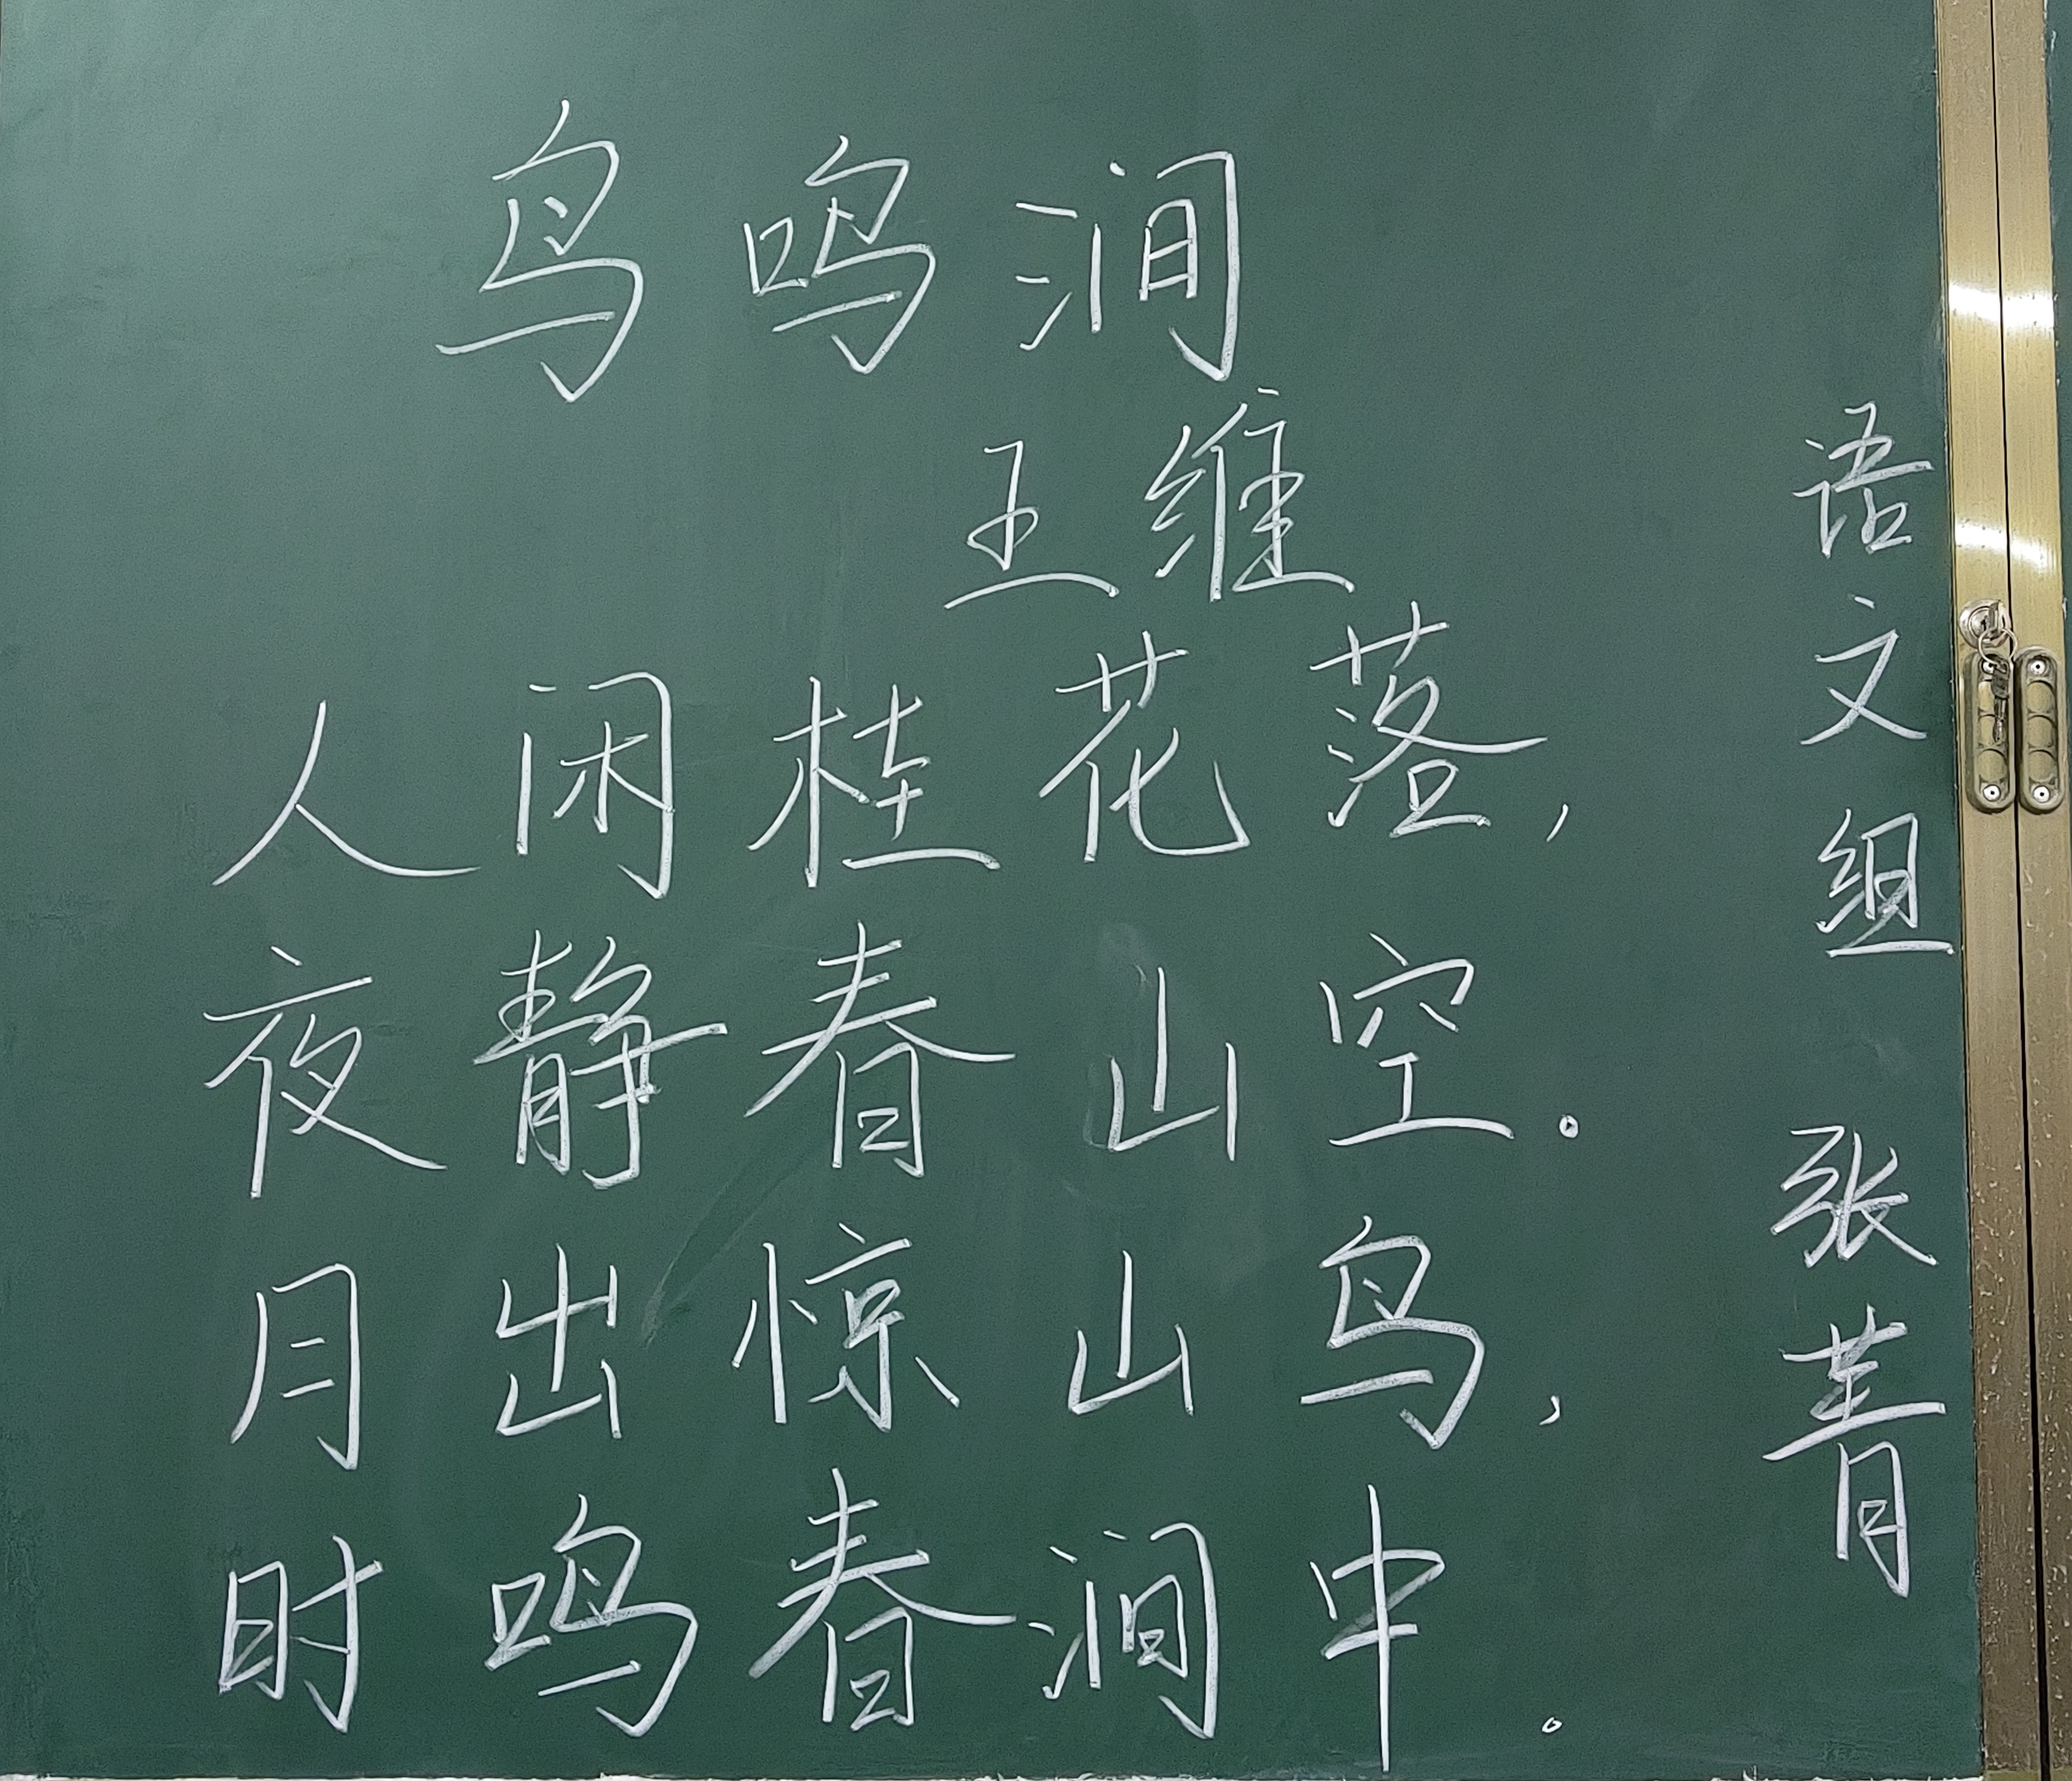 鸟鸣涧
王维
人闲桂花落，
夜静春山空。
月出惊山鸟，
时鸣春涧中。
语文组 张菁